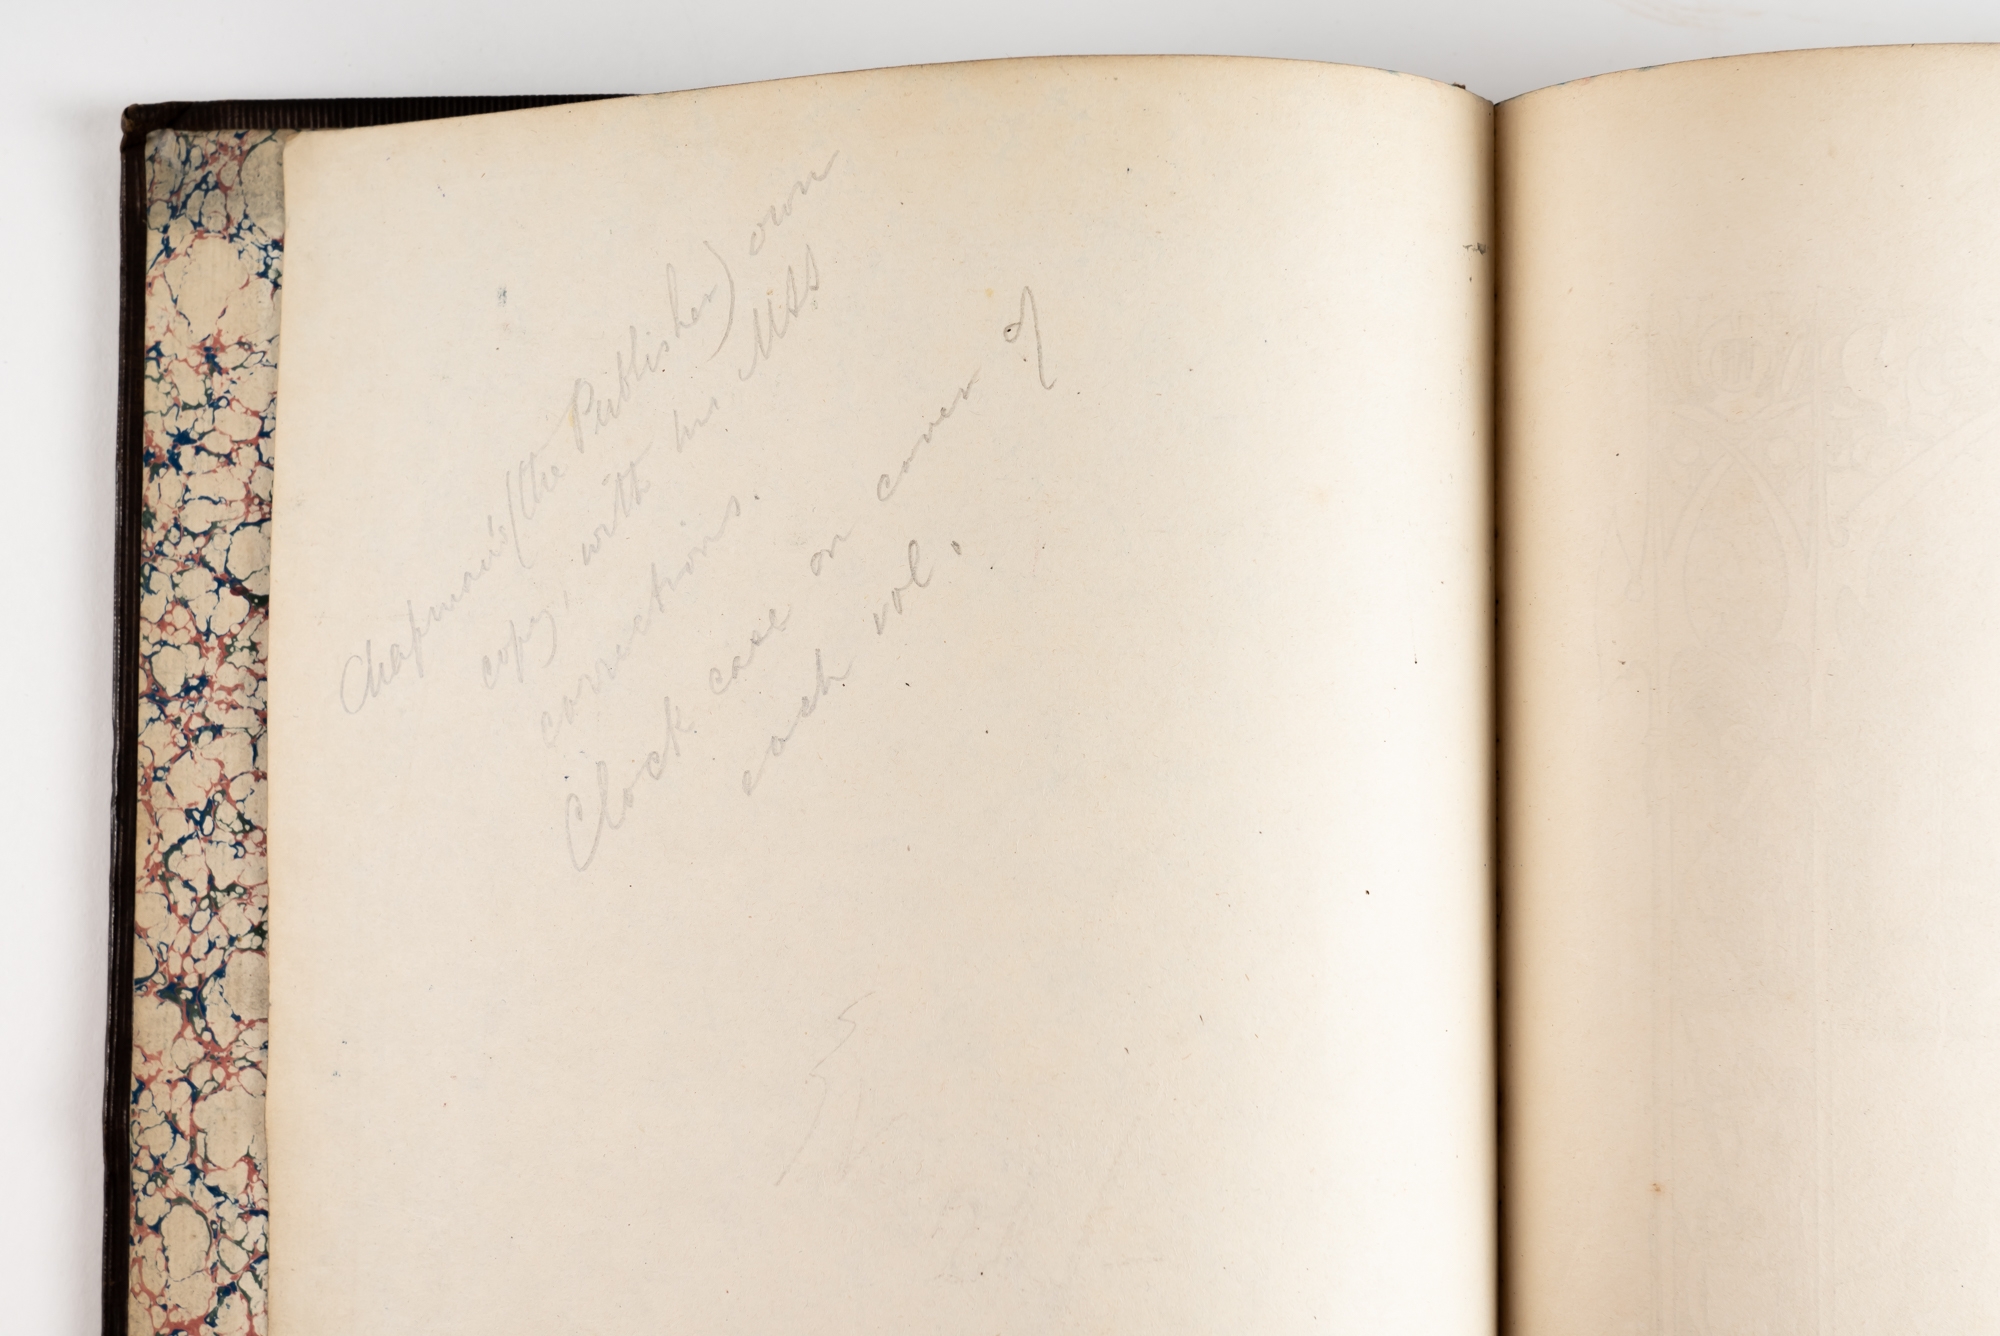 Chapman's (the Publisher) own
copy, with his MSS
corrections.
Clock case on cover of
each vol.